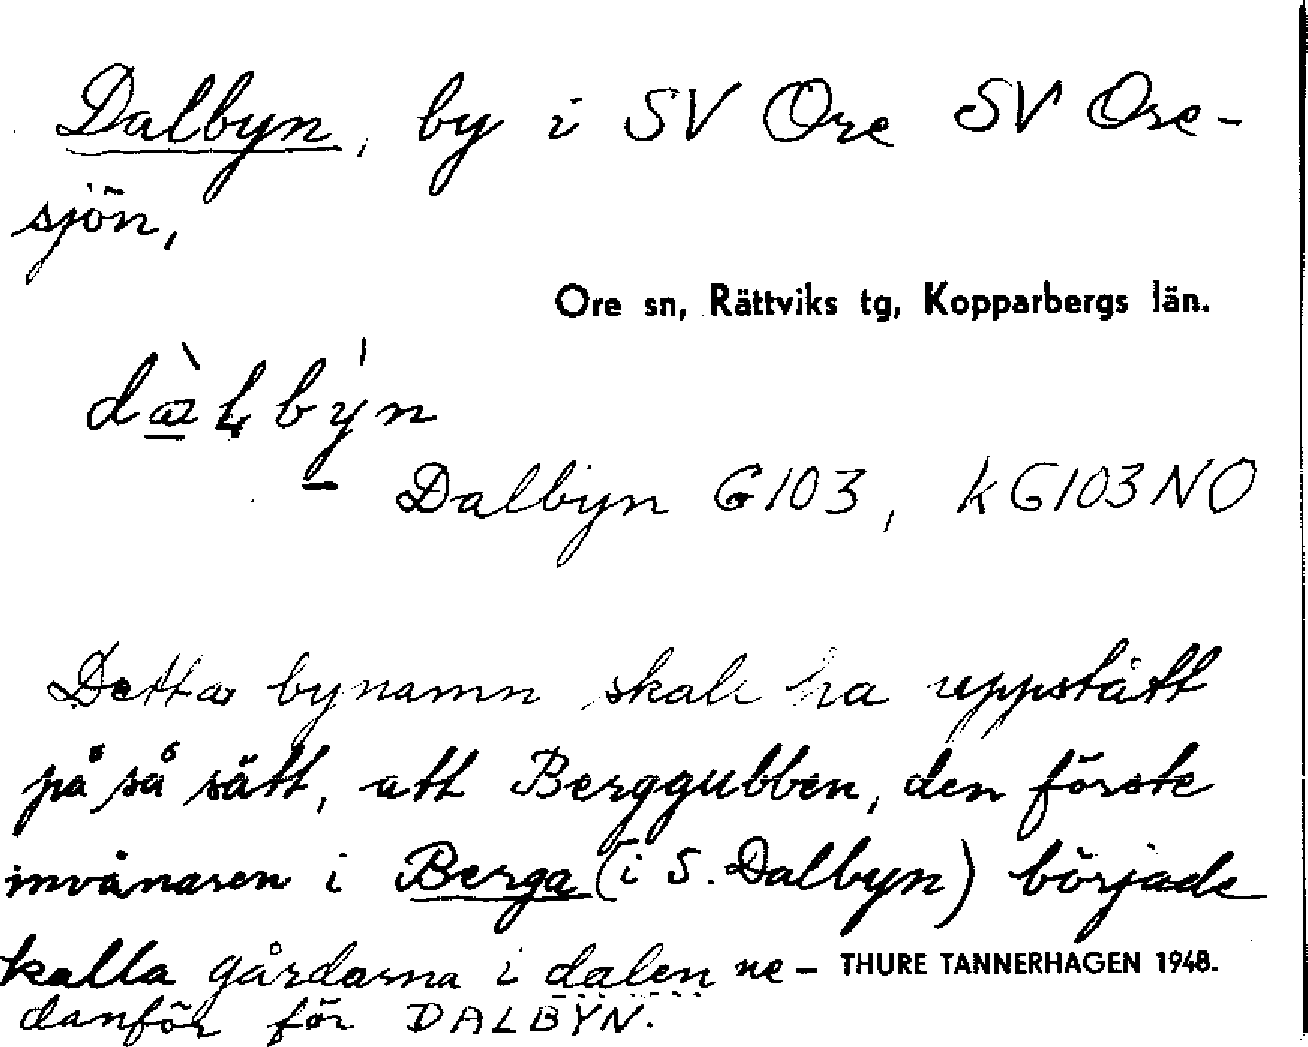 Dalbyn, by i SV Ore SV Ore-
sjön,
Ore sn, Rättviks tg, Kopparbergs län.
Dalbyn G103, kG103NO
Detta bynamn skall ha uppstått
på så sätt, att Berggubben, den förste
invånaren i Berga (i S. Dalbyn) började
kalla gårdarna i dalen ne-
THURE TANNERHAGEN 1948.
danför för DALBYN.